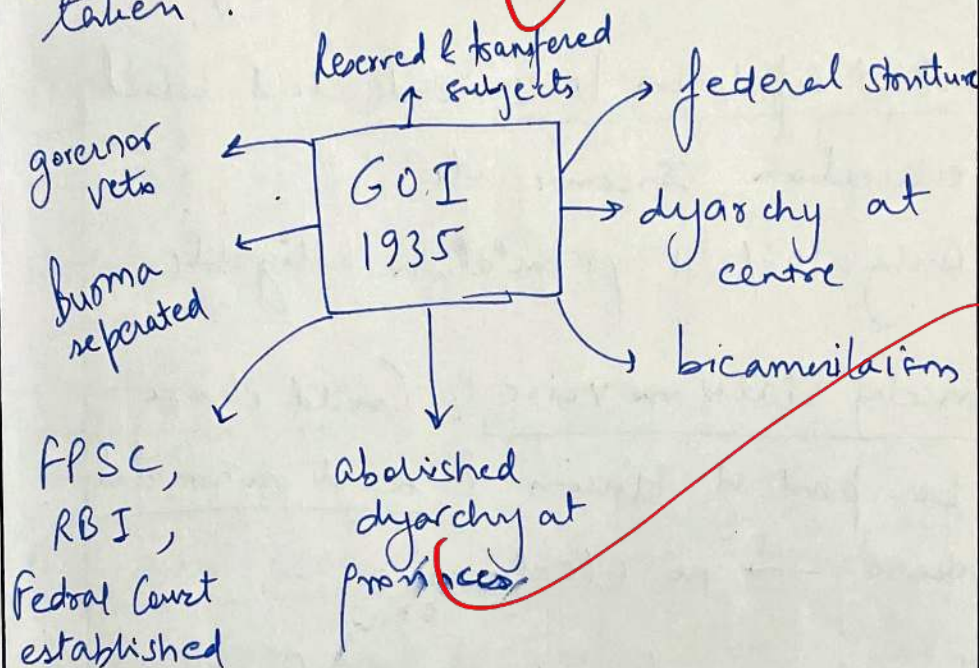 taken.
Reserved & transfered
subjects
federal struture
governor
veto
G.O.I
1935
dyarchy at
centre
Burma
seperated
bicamerilaism
FPSC,
RBI,
Fedral Court
established
abolished
dyarchy at
provinces